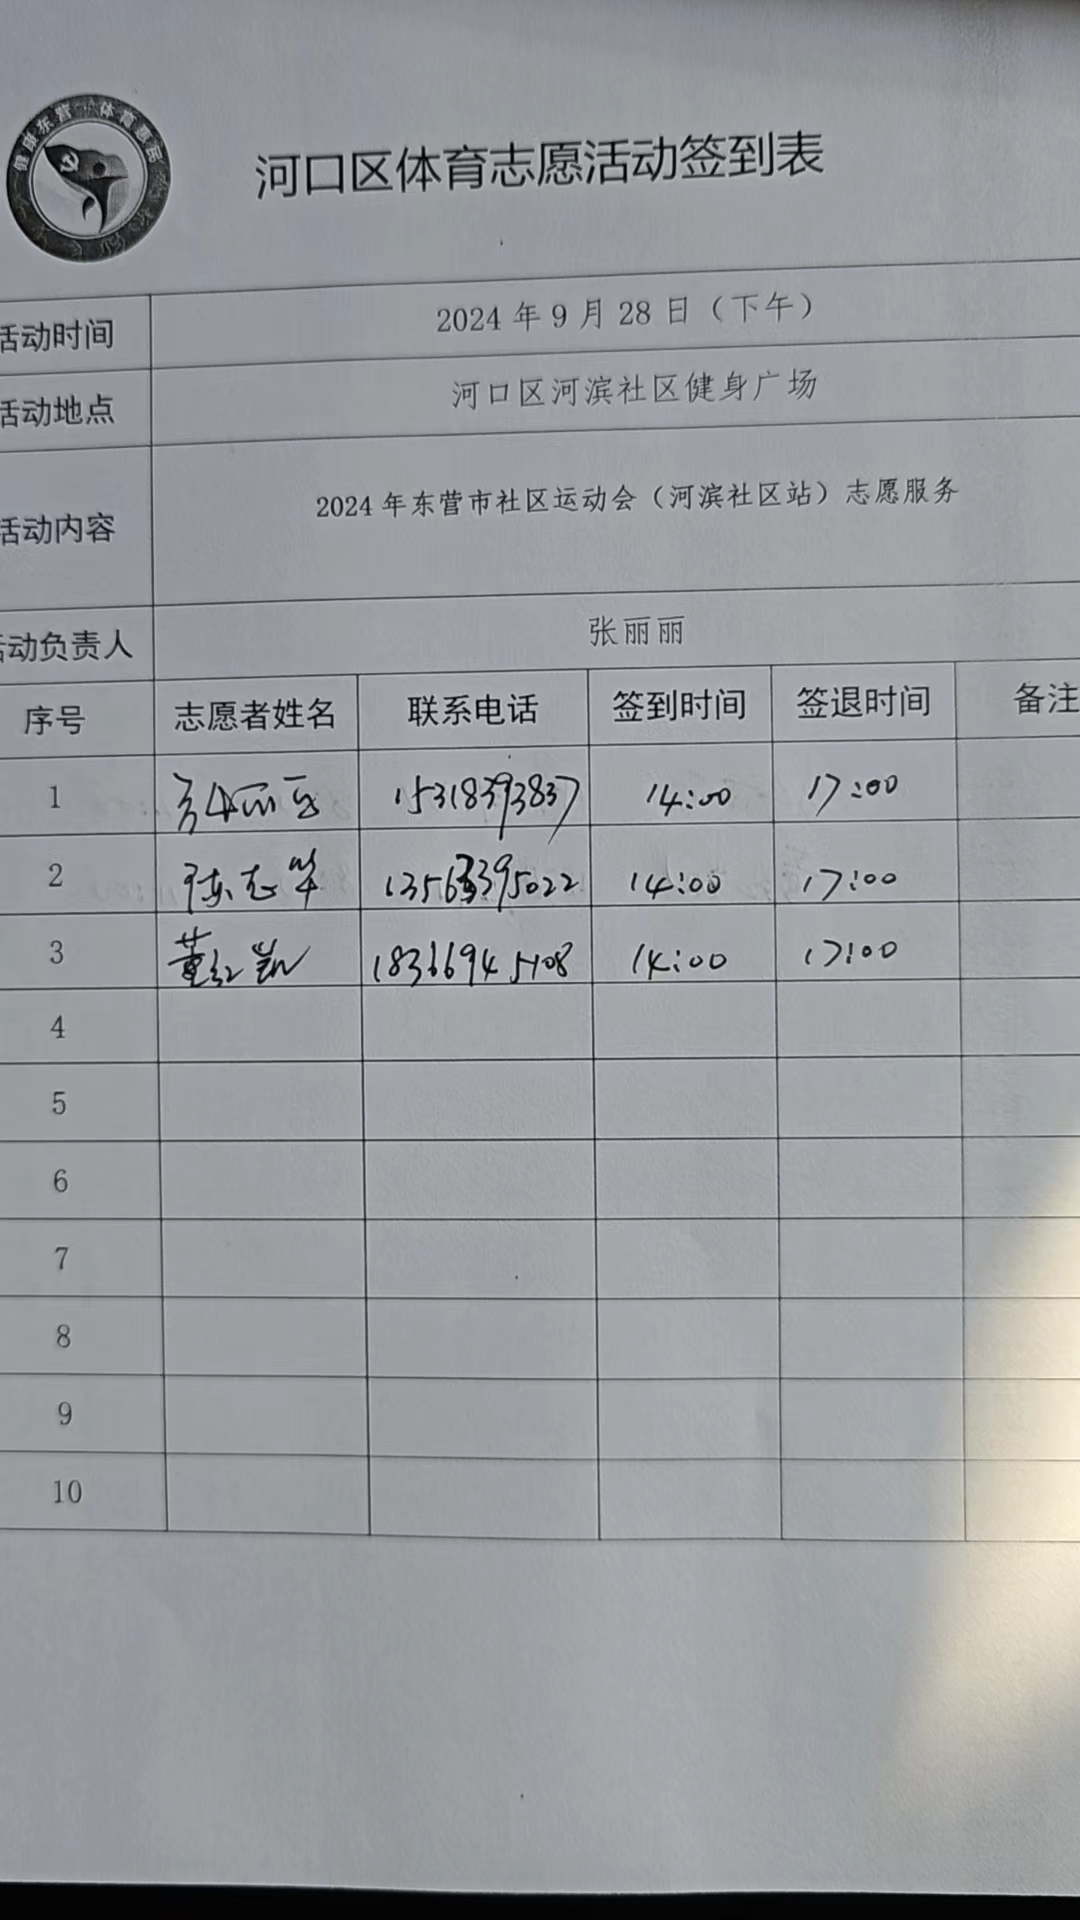 健康东营 体育惠民
河口区体育志愿活动签到表
活动时间 2024 年 9 月 28 日（下午）
活动地点 河口区河滨社区健身广场
活动内容 2024 年东营市社区运动会（河滨社区站）志愿服务
活动负责人 张丽丽
序号 志愿者姓名 联系电话 签到时间 签退时间 备注
1 15318393837 14:00 17:00
2 陈志华 13563395022 14:00 17:00
3 董红凯 18366945108 14:00 17:00
4
5
6
7
8
9
10